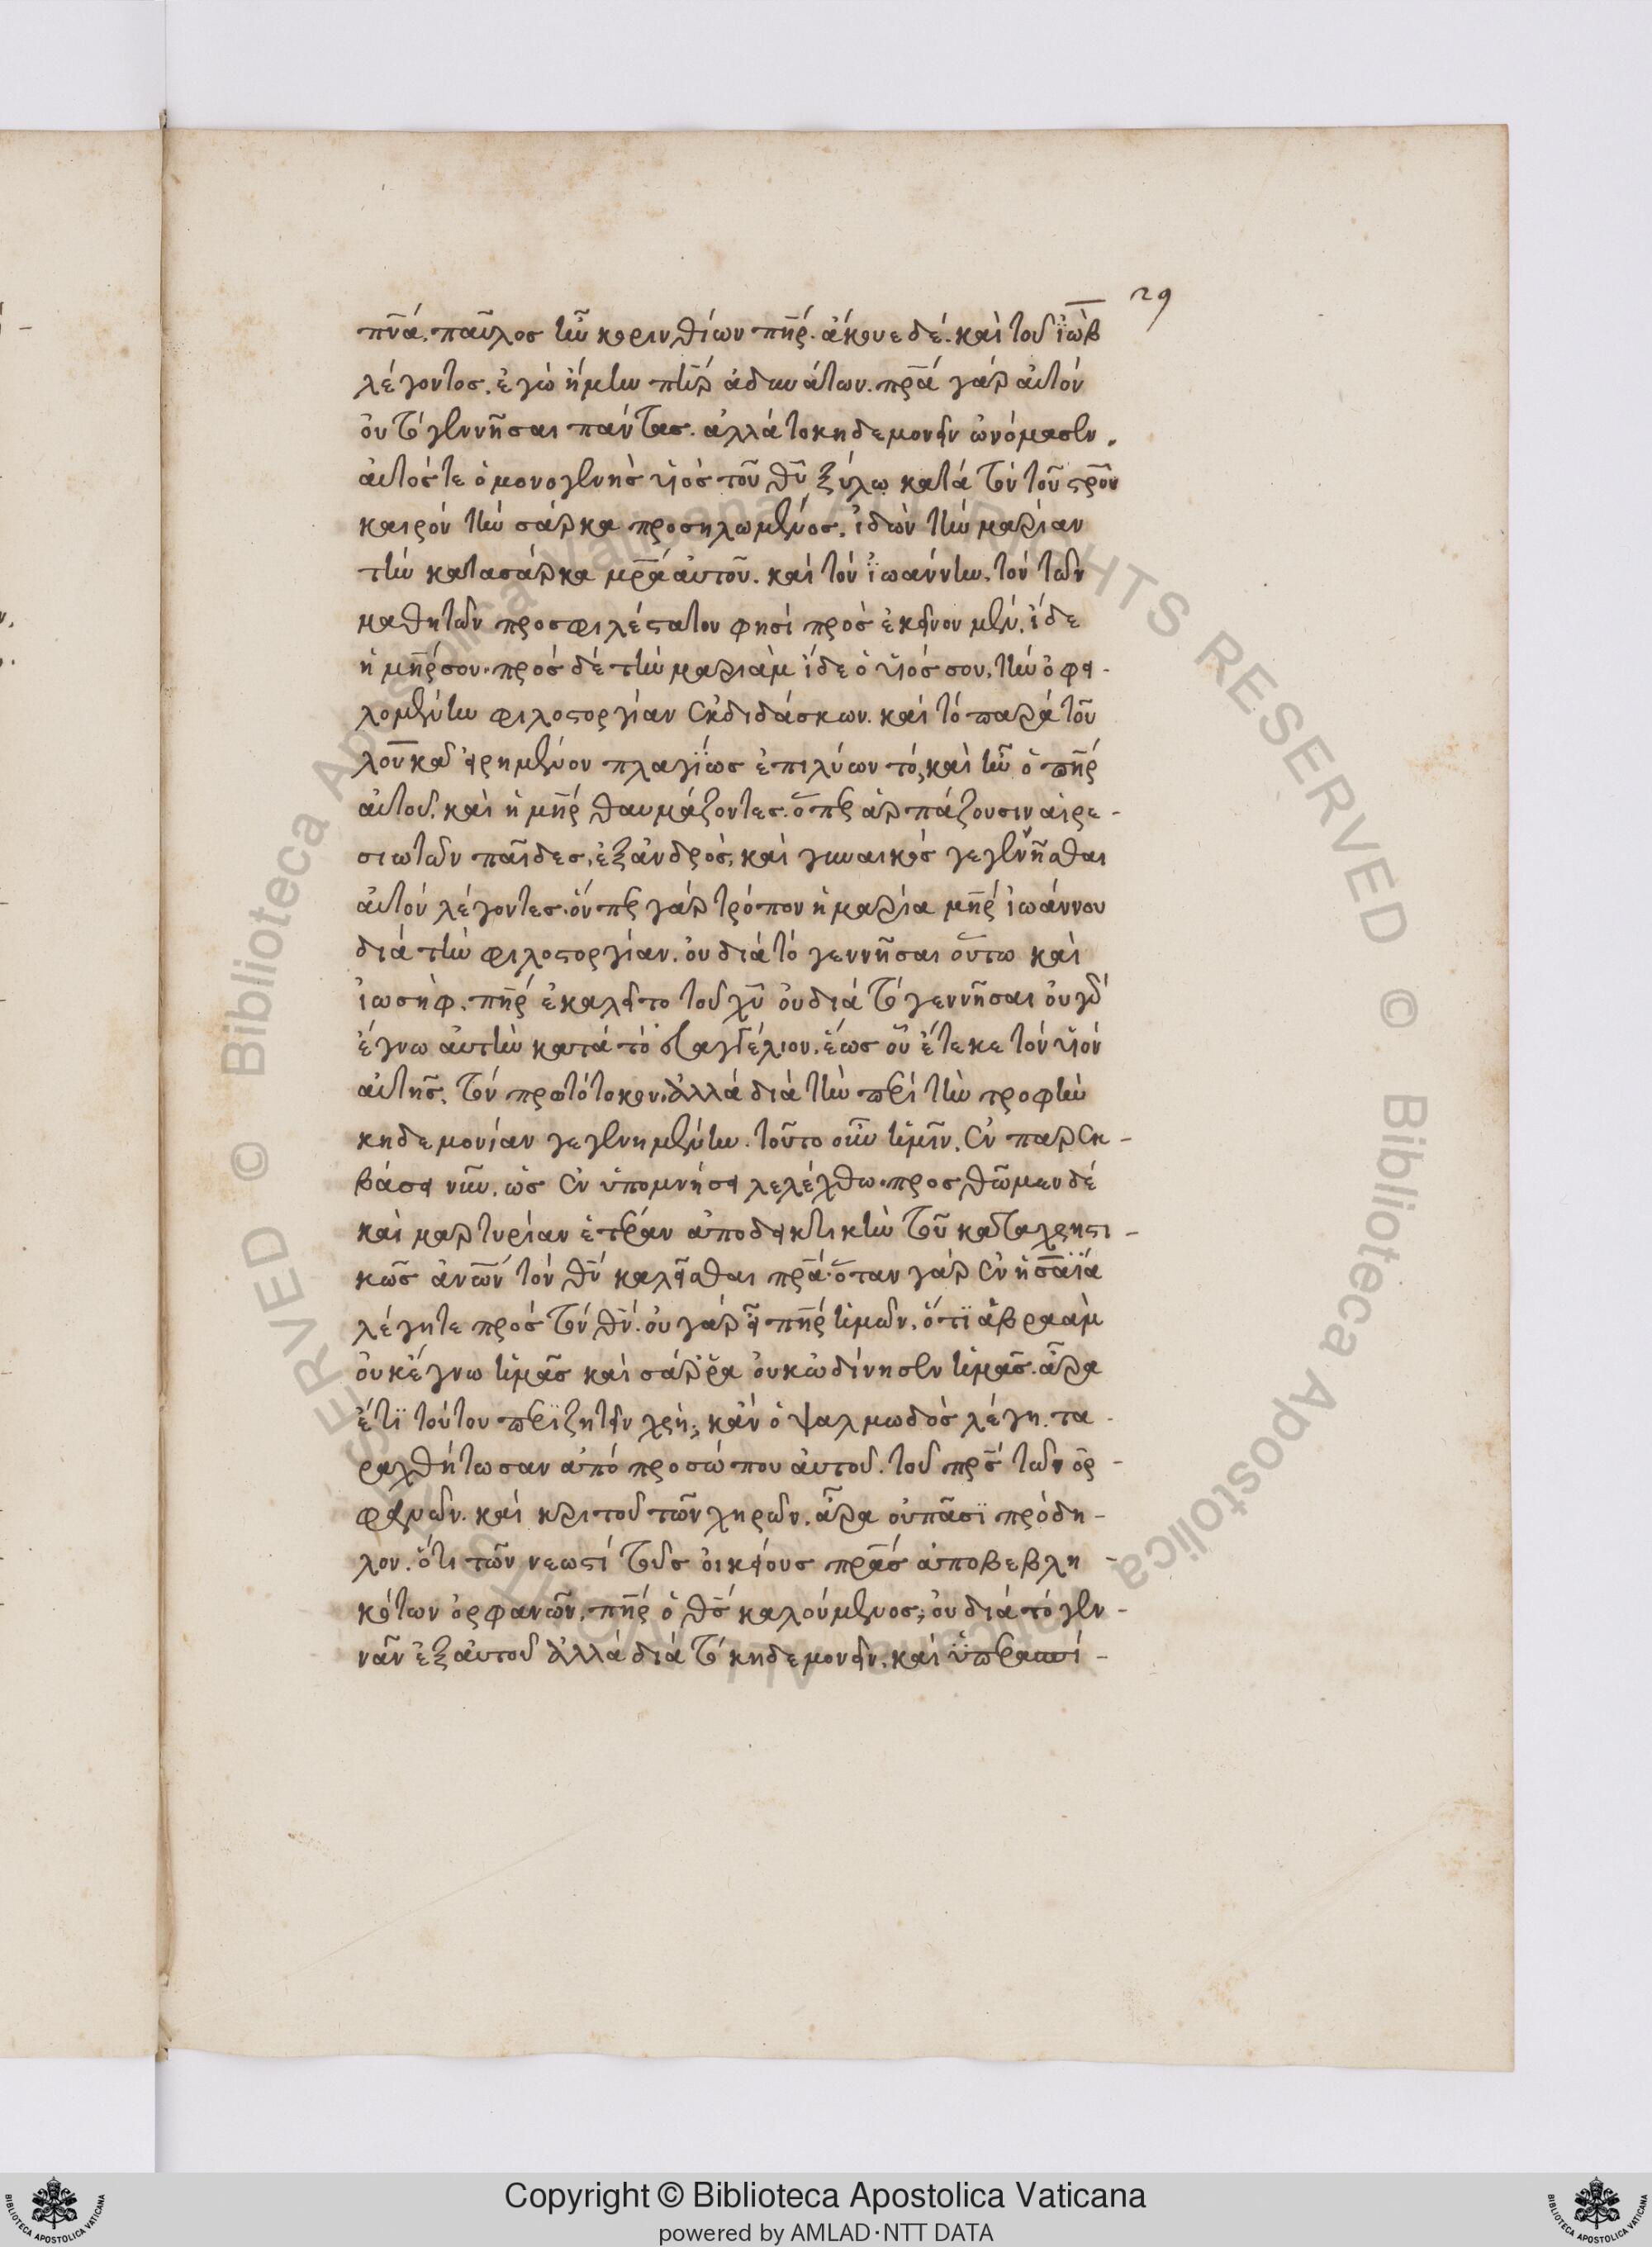 29
πν̅ά. παῦλος ἦν κορινθίων πη̅ρ. ἄκουε δέ. καὶ τοῦ ἰ̈ώβ
λέγοντος. ἐγὼ ἤμην πη̅ρ ἀδυνάτων. πρ̅α γὰρ αὐτὸν
οὐ τὸ γεννῆσαι πάντας. ἀλλὰ τὸ κηδεμονεῖν ὠνόμασεν.
αὐτός τε ὁ μονογενὴς υἱὸς τοῦ θυ̅ ξύλω κατὰ τὸν τοῦ σρ̅ου
καιρὸν τὴν σάρκα προσηλωμένος. ἰδὼν τὴν μαρίαν
τὴν κατασάρκα μρ̅α αὐτοῦ. καὶ τὸν ἰ̈ωάννην. τὸν τῶν
μαθητῶν προσφιλέστατον φησὶ πρὸς ἐκεῖνον μὲν. ἴδε
ἡ μη̅ρ σου. πρὸς δὲ τὴν μαριὰμ ἴδε ὁ υἱός σου. τὴν ὀφει-
λομένην φιλοστοργίαν ἐκδιδάσκων. καὶ τὸ παρὰ τοῦ
λουκᾶ εἰρημένον πλαγίως ἐπιλύων τό, καὶ ἦν ὁ πη̅ρ
αὐτοῦ. καὶ ἡ μη̅ρ θαυμάζοντες. ὅπερ ἁρπάζουσιν αἱρε-
σιωτῶν παῖδες, ἐξ ἀνδρὸς, καὶ γυναικὸς γεγεννῆσθαι
αὐτὸν λέγοντες. ὅνπερ γὰρ τρόπον ἡ μαρία μη̅ρ ἰωάννου
διὰ τὴν φιλοστοργίαν. οὐ διὰ τὸ γεννῆσαι οὕτω καὶ
ἰωσὴφ. πη̅ρ ἐκαλεῖτο τοῦ χυ̅ οὐ διὰ τὸ γεννῆσαι οὐ γὰρ
ἔγνω αὐτὴν κατὰ τὸ εὐαγγέλιον. ἕως οὗ ἔτεκε τὸν υἱὸν
αὐτῆς. τὸν πρωτότοκον. ἀλλὰ διὰ τὴν περὶ τὴν τροφὴν
κηδεμονίαν γεγενημένην. τοῦτο οὖν ἡμῖν. ἐν παρεκ-
βάσει νῦν. ὡς ἐν ὑπομνήσει λελέχθω. προσθῶμεν δὲ
καὶ μαρτυρίαν ἑτέραν ἀποδεικτικὴν τοῦ καταχρηστι-
κῶς ἀνω̅ν τὸν θν̅ καλεῖσθαι πρ̅α. ὅταν γὰρ ἐν ἡσαΐα
λέγητε πρὸς τὸν θν̅. σὺ γὰρ εἶ πη̅ρ ἡμῶν. ὅτϊ ἀβραὰμ
οὐκ ἔγνω ἡμᾶς καὶ σάρρα οὐκ ὠδίνησεν ἡμᾶς. ἆρα
ἔτϊ τούτου περϊζητεῖν χρή; κἂν ὁ ψαλμωδὸς λέγη. τα-
ραχθήτωσαν ἀπὸ προσώπου αὐτοῦ. τοῦ πρ̅ς τῶν ὀρ-
φανῶν. καὶ κριτοῦ τῶν χηρῶν. ἆρα οὐ πᾶσϊ πρόδη-
λον. ὅτι τῶν νεωστὶ τοὺς οἰκείους πρ̅ας ἀποβεβλη-
κότων ὀρφανῶν. πη̅ρ ὁ θς̅ καλούμενος; οὐ διὰ τὸ γεν-
νᾶν ἐξ αὐτοῦ ἀλλὰ διὰ τὸ κηδεμονεῖν. καὶ